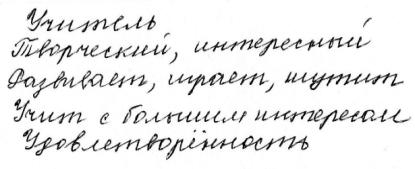 Учитель
Творческий, интересный
Развивает, играет, шутит
Учит с большим интересом
Удовлетворённость